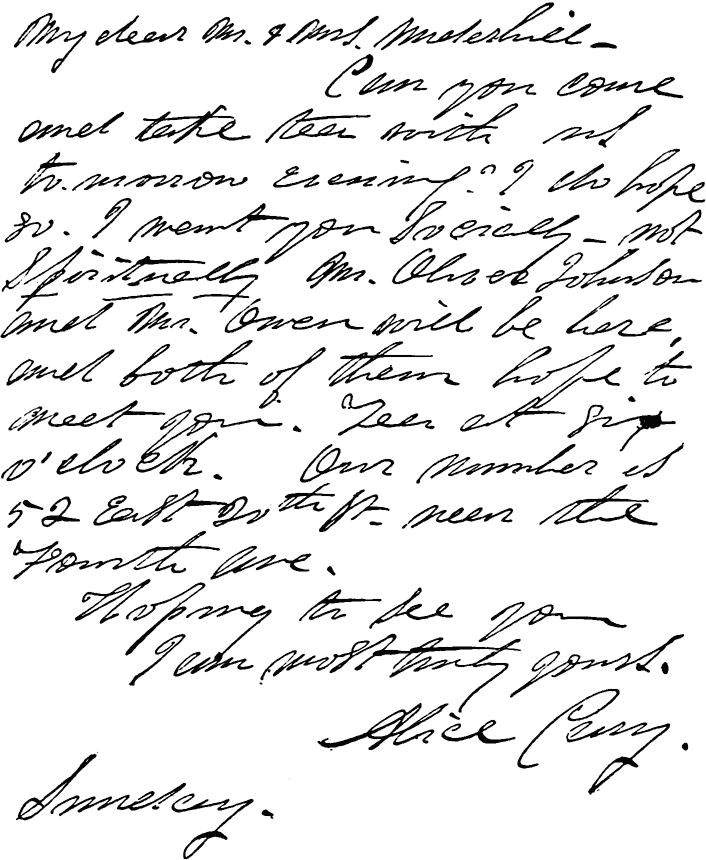 My dear Mr. & Mrs. Underhill –
Can you come
and take tea with us
to-morrow evening? I do hope
so. I want you Socially – not
Spiritually Mr. Oliver Johnson
and Mr. Owen will be here,
and both of them hope to
meet you. Tea at six
o'clock. Our number is
52 East 20th St. near the
Fourth Ave.
Hoping to see you
I am most truly yours.
Alice Cary.
Sunday.